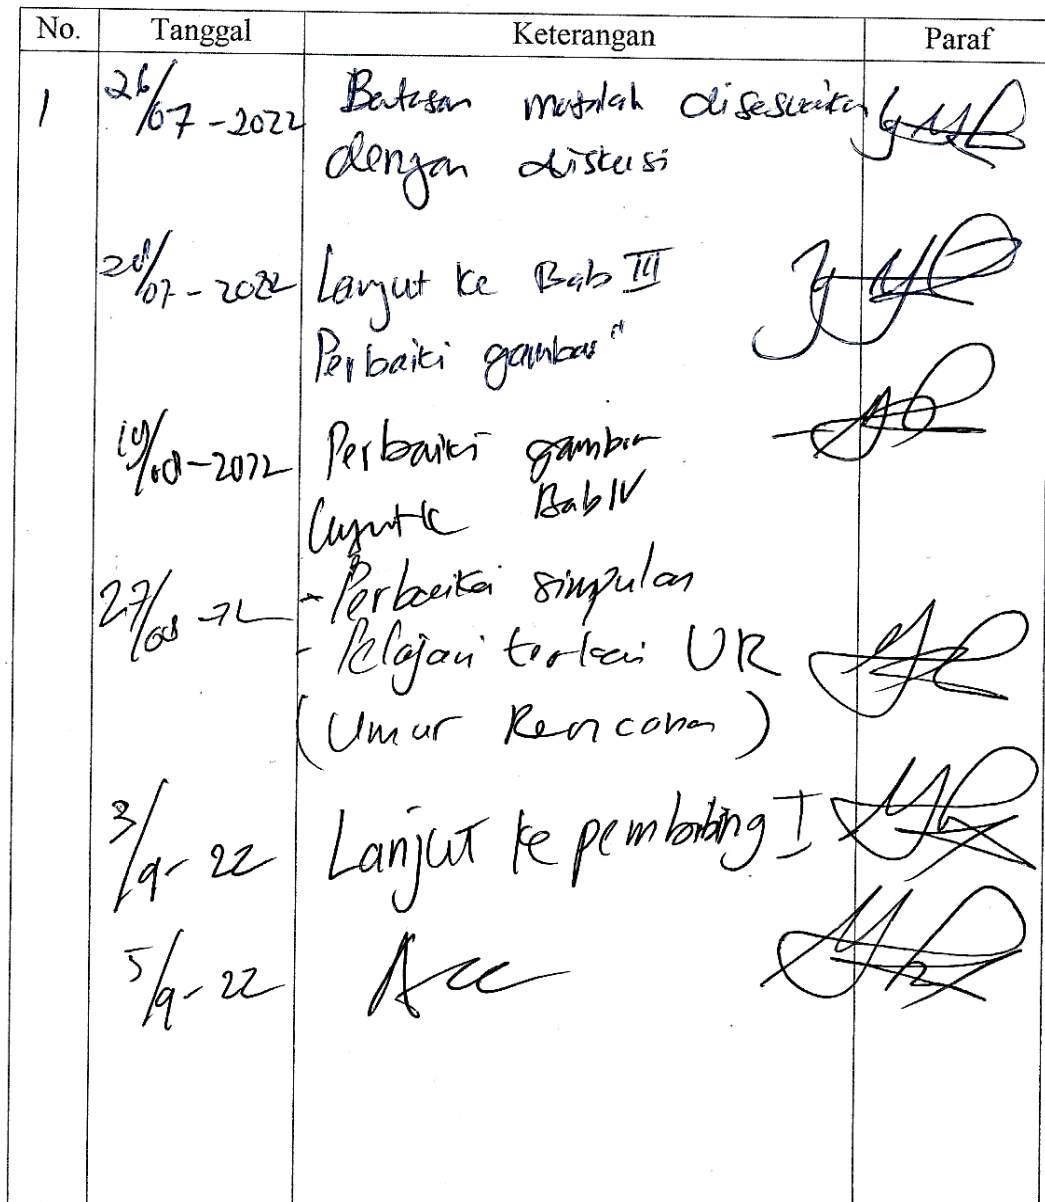 No. Tanggal Keterangan Paraf
1 26/07-2022 Batasan masalah disesuaikan
dengan diskusi
28/07-2022 Lanjut ke Bab III
Perbaiki gambar"
19/08-2022 Perbaiki gambar
Lanjut ke Bab IV
27/08-22 - Perbaiki simpulan
- Pelajari terkai UR
(Umur Rencana)
3/9-22 Lanjut ke pembimbing I
5/9-22 Acc